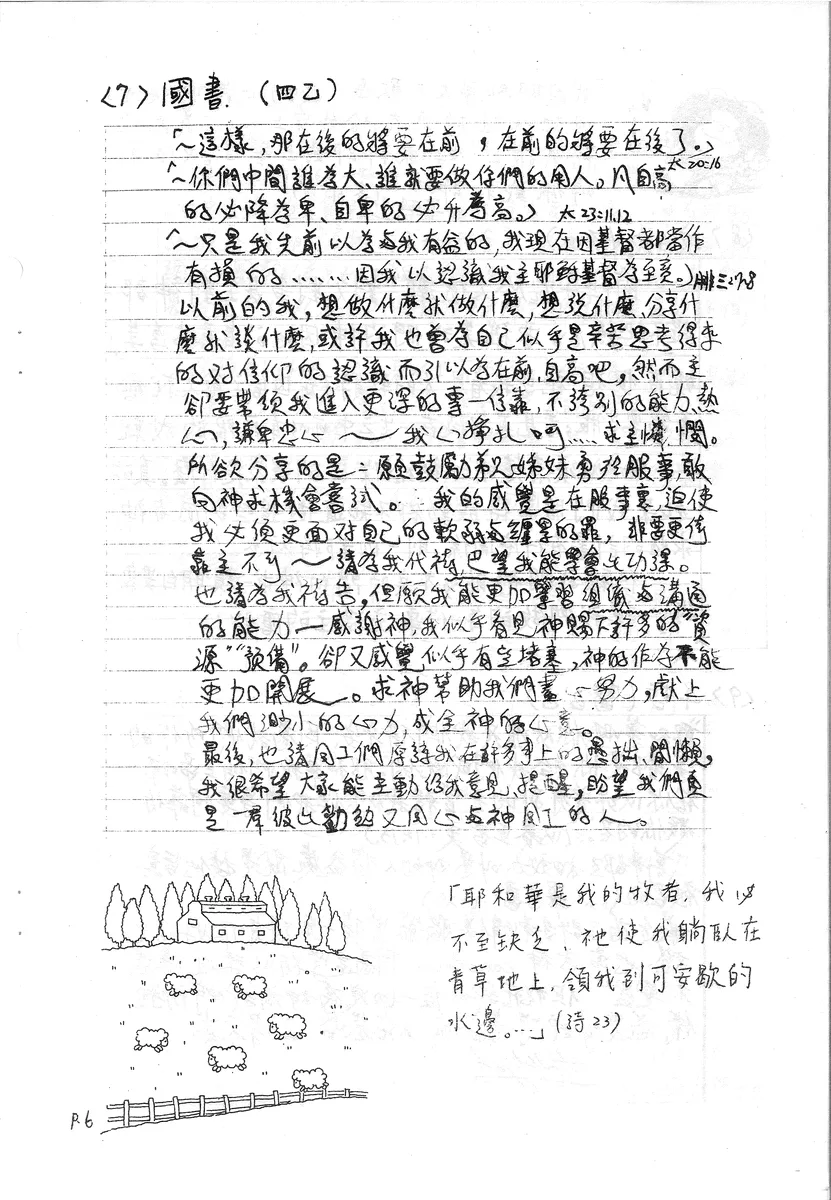 〈7〉國書.（四乙）
「~這樣，那在後的將要在前，在前的將要在後了。」太20:16
「~你們中間誰為大、誰就要做你們的用人。凡自高
的必降為卑、自卑的必升為高。」太23:11.12
「~只是我先前以為與我有益的，我現在因基督都當作
有損的………因我以認識我主耶穌基督為至寶。」腓三2:7-8
以前的我，想做什麼就做什麼，想說什麼、分享什
麼就談什麼，或許我也曾為自己似乎是辛苦思考得來
的對信仰的認識而引以為在前，自高吧，然而主
卻要帶領我進入更深的專一信靠，不誇別的能力、熱
心，謙卑忠心～我心掙扎呵.....求主憐憫。
所欲分享的是：願鼓勵弟兄姊妹勇於服事，敢
向神求機會嘗試。∴我的感覺是在服事裏，迫使
我必須更面對自己的軟弱與纏累的罪，非要更倚
靠主不行～請為我代禱，巴望我能學會此功課。
也請為我禱告，但願我能更加學習組織與溝通
的能力－感謝神，我似乎看見神賜下許多的"資
源""預備"。卻又感覺似乎有些堵塞，神的作為不能
更加開展。求神幫助我們盡心努力，獻上
我們渺小的心力，成全神的心意。
最後，也請同工們原諒我在許多事上的愚拙、閒懶，
我很希望大家能主動給我意見、提醒，盼望我們真
是一群彼此勸勉又同心與神同工的人。
「耶和華是我的牧者，我必
不至缺乏、祂使我躺臥在
青草地上，領我到可安歇的
水邊。…」(詩23)
P.6